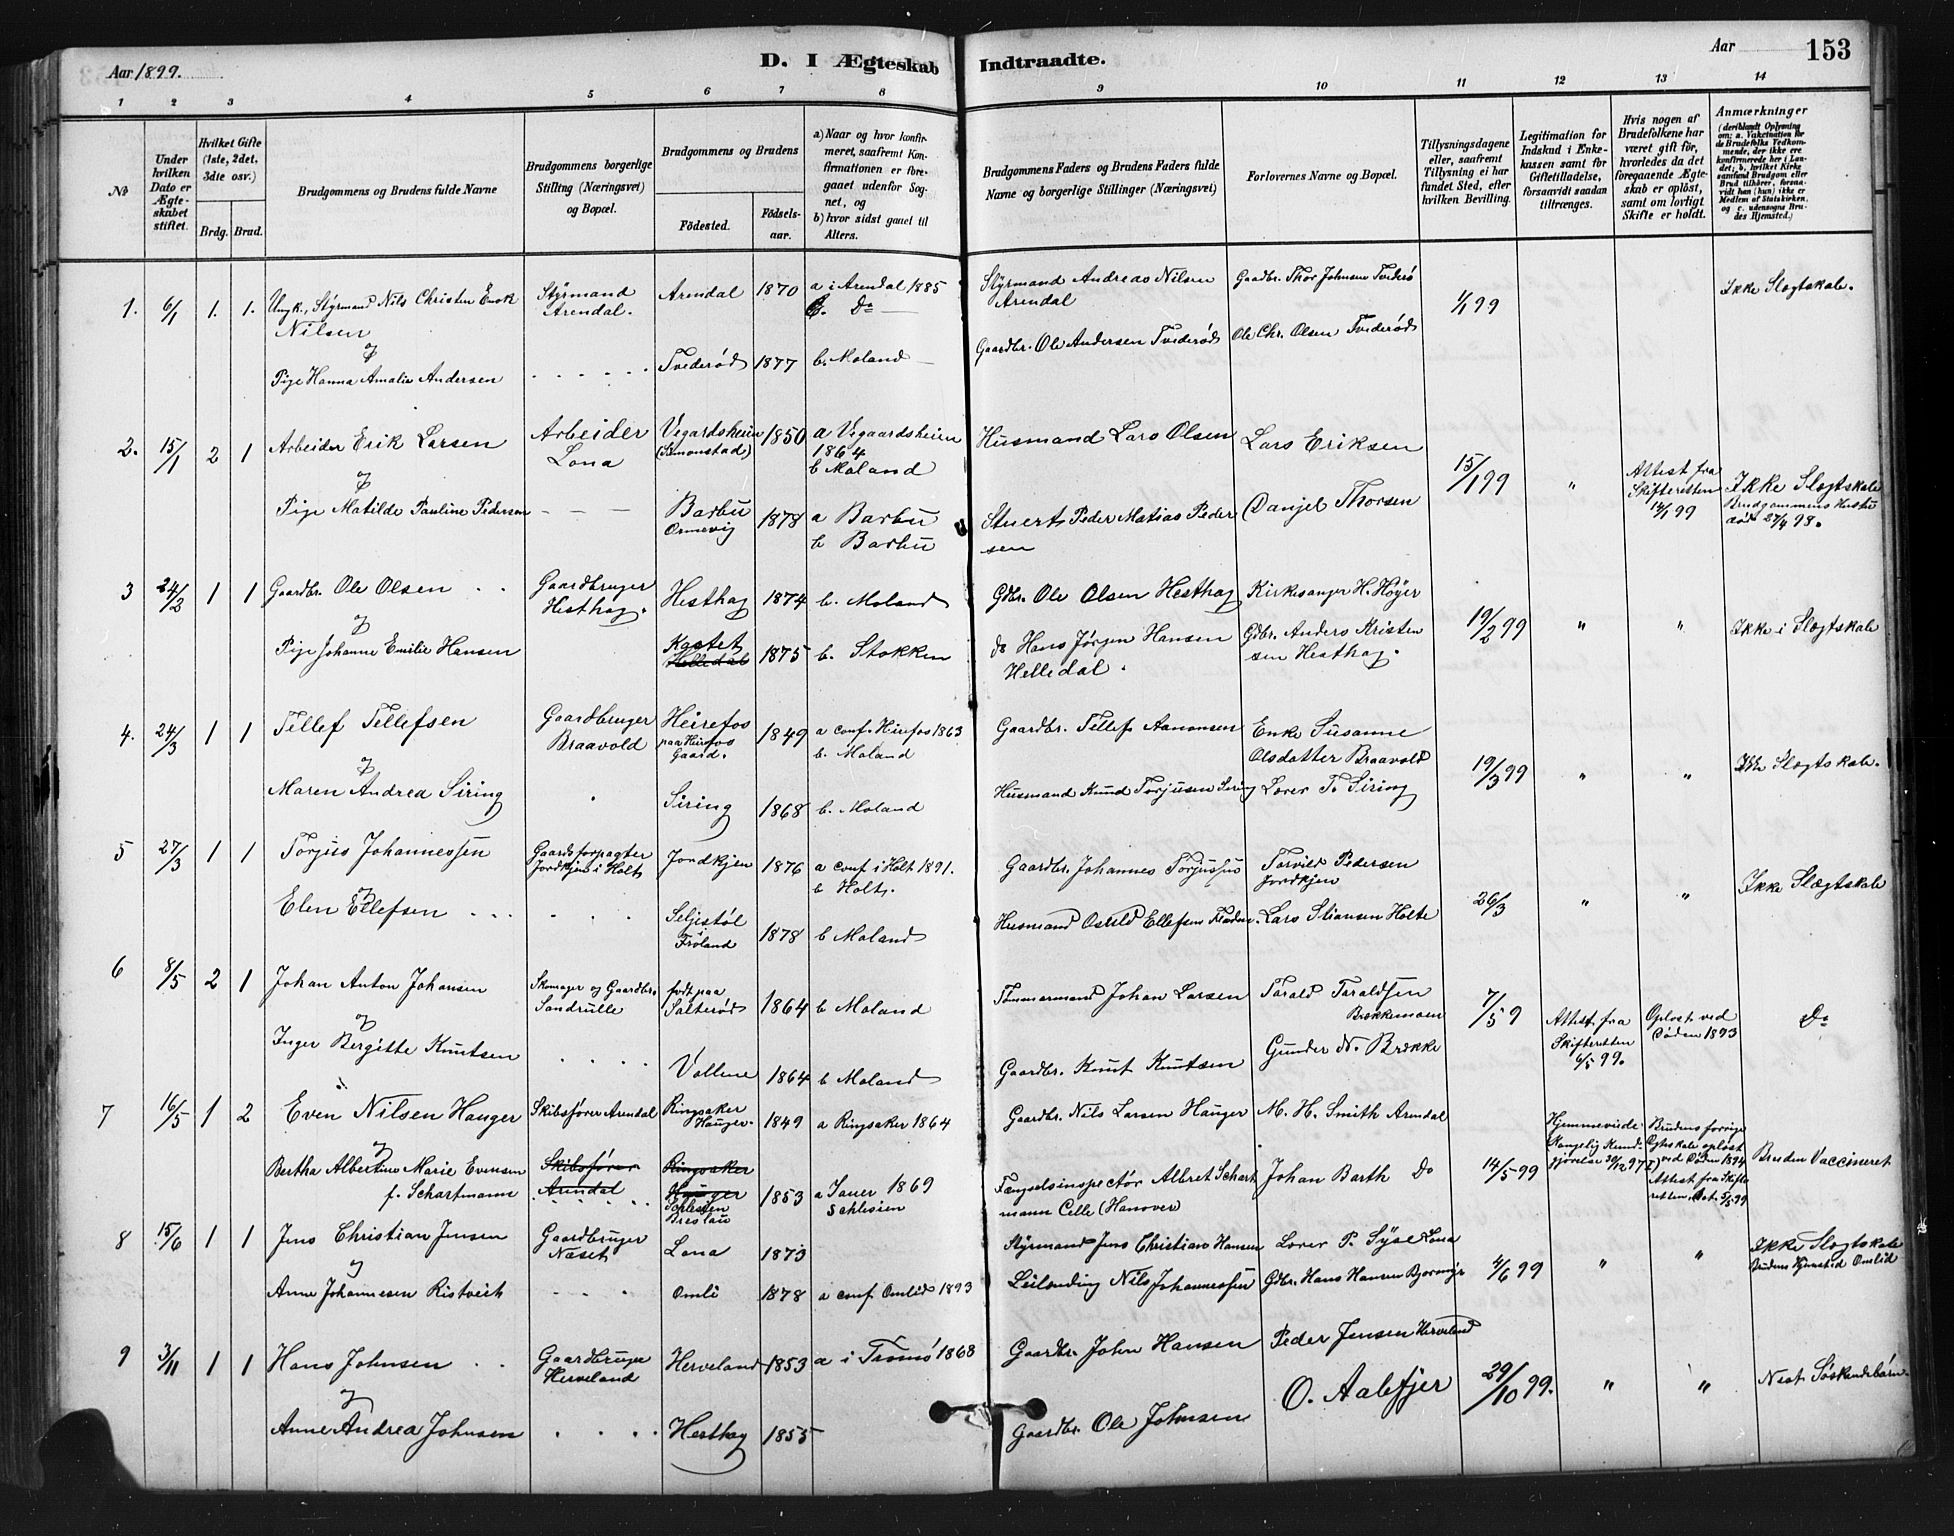 Aar 1899.
D. I Ægteskab Indtraadte.
Aar
153
1 2 3 4 5 6 7 8 9 10 11 12 13 14
No
Under hvilken Dato er Ægteskabet stiftet.
Hvilket Gifte (1ste, 2det, 3die osv.)
Brdg. Brud.
Brudgommens og Brudens fulde Navne
Brudgommens borgerlige Stilling (Næringsvei) og Bopæl.
Brudgommens og Brudens
Födested. Födselsaar.
a) Naar og hvor konfirmeret, saafremt Konfirmationen er foregaaet udenfor Sognet, og
b) hvor sidst gaaet til Alters.
Brudgommens Faders og Brudens Faders fulde Navne og borgerlige Stillinger (Næringsvei)
Forlovernes Navne og Bopæl.
Tillysningsdagene eller, saafremt Tillysning ei har fundet Sted, efter hvilken Bevilling.
Legitimation for Indskud i Enkekassen samt for Giftetilladelse, forsaavidt saadan tiltrænges.
Hvis nogen af Brudefolkene har været gift för, hvorledes da det foregaaende Ægteskab er oplöst, samt om lovligt Skifte er holdt.
Anmærkninger (deriblandt Oplysning om: a. Vakcination for de Brudefolks Vedkommende, der ikke ere konfirmerede her i Landet; b. hvilket Kirkesamfund Brudgom eller Brud tilhörer, forsaavidt han (hun) ikke er Medlem af Statskirken, og c. udensogns Brudes Hjemsted.)
1. 6/1 1. 1. Ungk., Styrmand Nils Christen Enok Styrmand Arendal 1870 a i Arendal 1885 Styrmand Andreas Nilsen Gaardbr. Thor Johnsen Tvederø 1/1 99 Ikke Slegtskab.
Nilsen Arendal. b. Do Arendal
og
Pige Hanna Amalie Andersen Tvederød 1877 b. Moland Gaardbr. Ole Andersen Tvederød Ole Chr. Olsen Tvederød
2. 15/1 2 1 Arbeider Erik Larsen Arbeider Vegardsheien 1850 a Vegaardsheien Husmand Lars Olsen Lars Eriksen 15/1 99 " Attest fra Ikke Slegtskab
Lona (Simonstad) 1864 Skifteretten Brudgommens Hustru
og b Moland 14/1 99 død 27/4 98.
Pige Matilde Pauline Pedersen Barbu 1878 a Barbu Stuert Peder Matias Peder Danjel Thorsen
Ormevig b Barbu sen
3 24/2 1 1 Gaardbr. Ole Olsen Gaardbruger Hesthag 1874 b. Moland Gdbr. Ole Olsen Hesthag Kirkesanger H. Höyer 19/2 99 " " Ikke i Slegtskab
og Hesthag.
Pige Johanne Emilie Hansen Kastet 1875 b. Stokken do Hans Jørgen Hansen Gdbr. Anders Kristen
Helledal Helledal. sen Hesthag.
4. 24/3 1 1 Tellef Tellefsen Gaardbruger Heirefos 1849 a conf. Hirefos 1863 Gaardbr. Tellef Aanonsen Enke Susanne 19/3 99 " " Ikke Slegtskab.
og Braavold paa Hirefos Gaard. b. Moland Olsdatter Braavold
Maren Andrea Siring Siring 1868 b. Moland Husmand Knud Torjusen Siring Lærer T. Siring
5 27/3 1 1 Torjus Johannessen Gaardsforpagter Jordkjen 1876 a conf i Holt 1891. Gaardbr. Johannes Torjussen Torvild Pedersen 26/3 " " Ikke Slægtskab
og Jordkjen i Holt b Holt. Jordkjen
Elen Ellefsen Seljestøl i Froland 1878 b Moland Husmand Osuld Ellefsen Lars Stiansen Holte
6 8/5 2 1 Johan Anton Johansen Skomager og Gaardbr. født paa 1864 b Moland Tømmermand Johan Larsen Tarald Taraldsen 7/5 9 Attest fra Opløst ved Do
og Sandrulle Salterød Brekkemoen Skifteretten Døden 1893
Inger Bergitte Knutsen Vollene 1864 b Moland Gaardbr. Knut Knutsen Gunder N. Brekke 6/5 99.
7 16/5 1 2 Even Nilsen Hauger Skibsfører Arendal Ringsaker 1849 a Ringsaker 1864 Gaardbr. Nils Larsen Hauger M. H. Smith Arendal 14/5 99 Hjemmevirde Brudens forrige Bruden Vaccineret
og Hauger. Kongelig Kund Egteskab opløst
Bertha Albertine Marie Evensen Skibsfører Ringsaker 1853 a Jauer 1869 Fængselsinspectør Albret Schart Johan Barth Do gjørelse 30/12 97 ved Døden 1894
f. Schartmann Arendal Hauger Schlesien mann Celle (Hanover) Attest fra Skifte
Schlesien Breslau retten, dat. 5/5 99
8 15/6 1 1 Jens Christian Jensen Gaardbruger Lona 1873 Styrmand Jens Christian Hansen Lærer P. Syse Lona 4/6 99 " " Ikke Slegtskab
og Næset Brudens Hjemsted Omlid
Anne Johannesen Ristveit Omli 1878 a conf. Omlid 1893 Leilending Nils Johannessen Gdbr. Hans Hansen
9 3/11 1 1 Hans Johnsen Gaardbruger Herveland 1853 a i Tromø 1868 Gaardbr. John Hansen Peder Jensen Herveland 29/10 99. " " Næst Søskendebørn.
og Herveland
Anne Andrea Johnsen Hesthag 1855 Gaardbr. Ole Johnsen O. Aalefjer